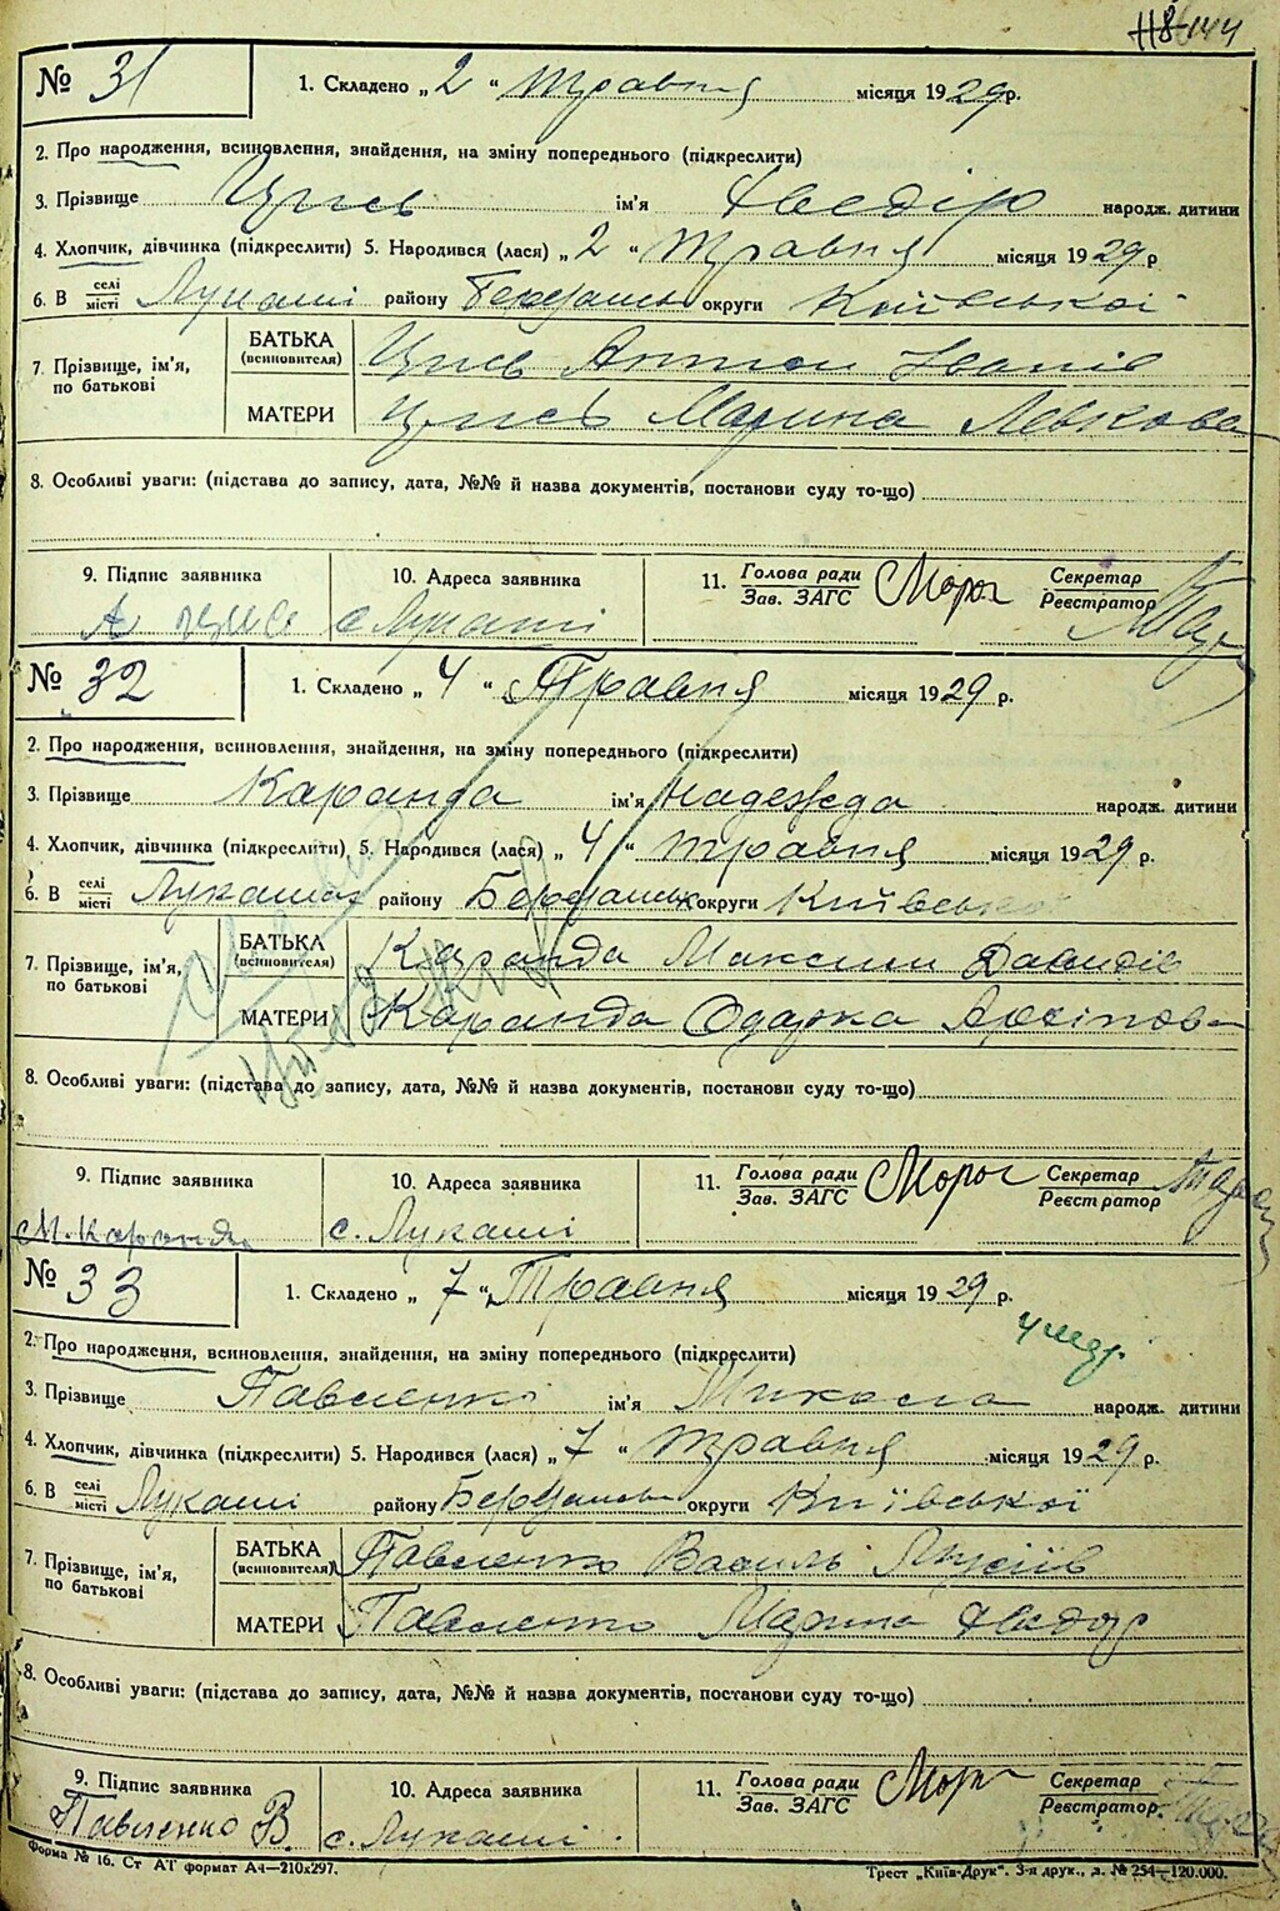 144
№ 31
1. Складено „ 2 “ Травня місяця 1929 р.
2. Про народження, всиновлення, знайдення, на зміну попереднього (підкреслити)
3. Прізвище Цись ім'я народж. дитини
4. Хлопчик, дівчинка (підкреслити) 5. Народився (лася) „ 2 “ Травня місяця 1929 р
6. В селі місті Лукаші району округи Київської
7. Прізвище, ім'я, по батькові
БАТЬКА (всиновителя) Цись Антон Іванів
МАТЕРИ Цись Марина Левкова
8. Особливі уваги: (підстава до запису, дата, №№ й назва документів, постанови суду то-що)
9. Підпис заявника 10. Адреса заявника 11. Голова ради Зав. ЗАГС Секретар Реєстратор
А Цись с Лукаші
№ 32
1. Складено „ 4 “ Травня місяця 1929 р.
2. Про народження, всиновлення, знайдення, на зміну попереднього (підкреслити)
3. Прізвище Каранда ім'я Надежда народж. дитини
4. Хлопчик, дівчинка (підкреслити) 5. Народився (лася) „ 4 “ травня місяця 1929 р.
6. В селі місті району округи Київської
7. Прізвище, ім'я, по батькові
БАТЬКА (всиновителя) Каранда Максим Давидів
МАТЕРИ Каранда Одарка
8. Особливі уваги: (підстава до запису, дата, №№ й назва документів, постанови суду то-що)
9. Підпис заявника 10. Адреса заявника 11. Голова ради Зав. ЗАГС Секретар Реєстратор
М. Каранда с. Лукаші
№ 33
1. Складено „ 7 “ Травня місяця 1929 р.
2. Про народження, всиновлення, знайдення, на зміну попереднього (підкреслити)
3. Прізвище Павленко ім'я Микола народж. дитини
4. Хлопчик, дівчинка (підкреслити) 5. Народився (лася) „ 7 “ травня місяця 1929 р.
6. В селі місті Лукаші району округи Київської
7. Прізвище, ім'я, по батькові
БАТЬКА (всиновителя) Павленко Василь
МАТЕРИ Павленко Марина
8. Особливі уваги: (підстава до запису, дата, №№ й назва документів, постанови суду то-що)
9. Підпис заявника 10. Адреса заявника 11. Голова ради Зав. ЗАГС Секретар Реєстратор.
Павленко В. с. Лукаші.
Форма № 16. Ст АТ формат А4—210х297.
Трест „Київ-Друк“. 3-я друк., з. № 254—120.000.